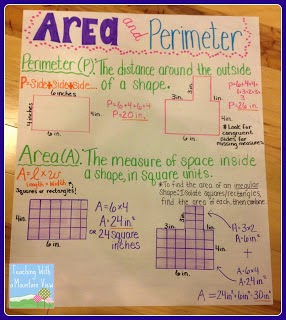 Area and Perimeter
Perimeter (P): The distance around the outside
P=Side+Side+Side... of a shape.
6 inches
4 inches
4in.
6in.
P=6+4+6+4
P=20in.
3in.
3in.
6in.
P=26in.
*Look for
congruent
sides for
missing measures.
Area (A): The measure of space inside
A=l×w
a shape, in square units.
Length × Width
Squares or rectangles!
4in.
6in.
A=6×4
A=24in²
or
24 square
inches
*To find the area of an irregular
shape: Isolate squares/rectangles,
find the area of each, then combine.
3in.
4in.
6in.
A=3×2
A=6in²
+
A=6×4
A=24in²
A=24in²+6in²=30in²
Teaching With
a Mountain View